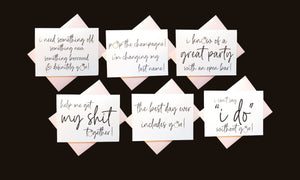 i need something old
something new
something borrowed
& definitely you!
pop the champagne!
i'm changing my
last name!
i know of a
great party
with an open bar!
help me get
my shit
together!
the best day ever
includes you!
i can't say
"i do"
without you!